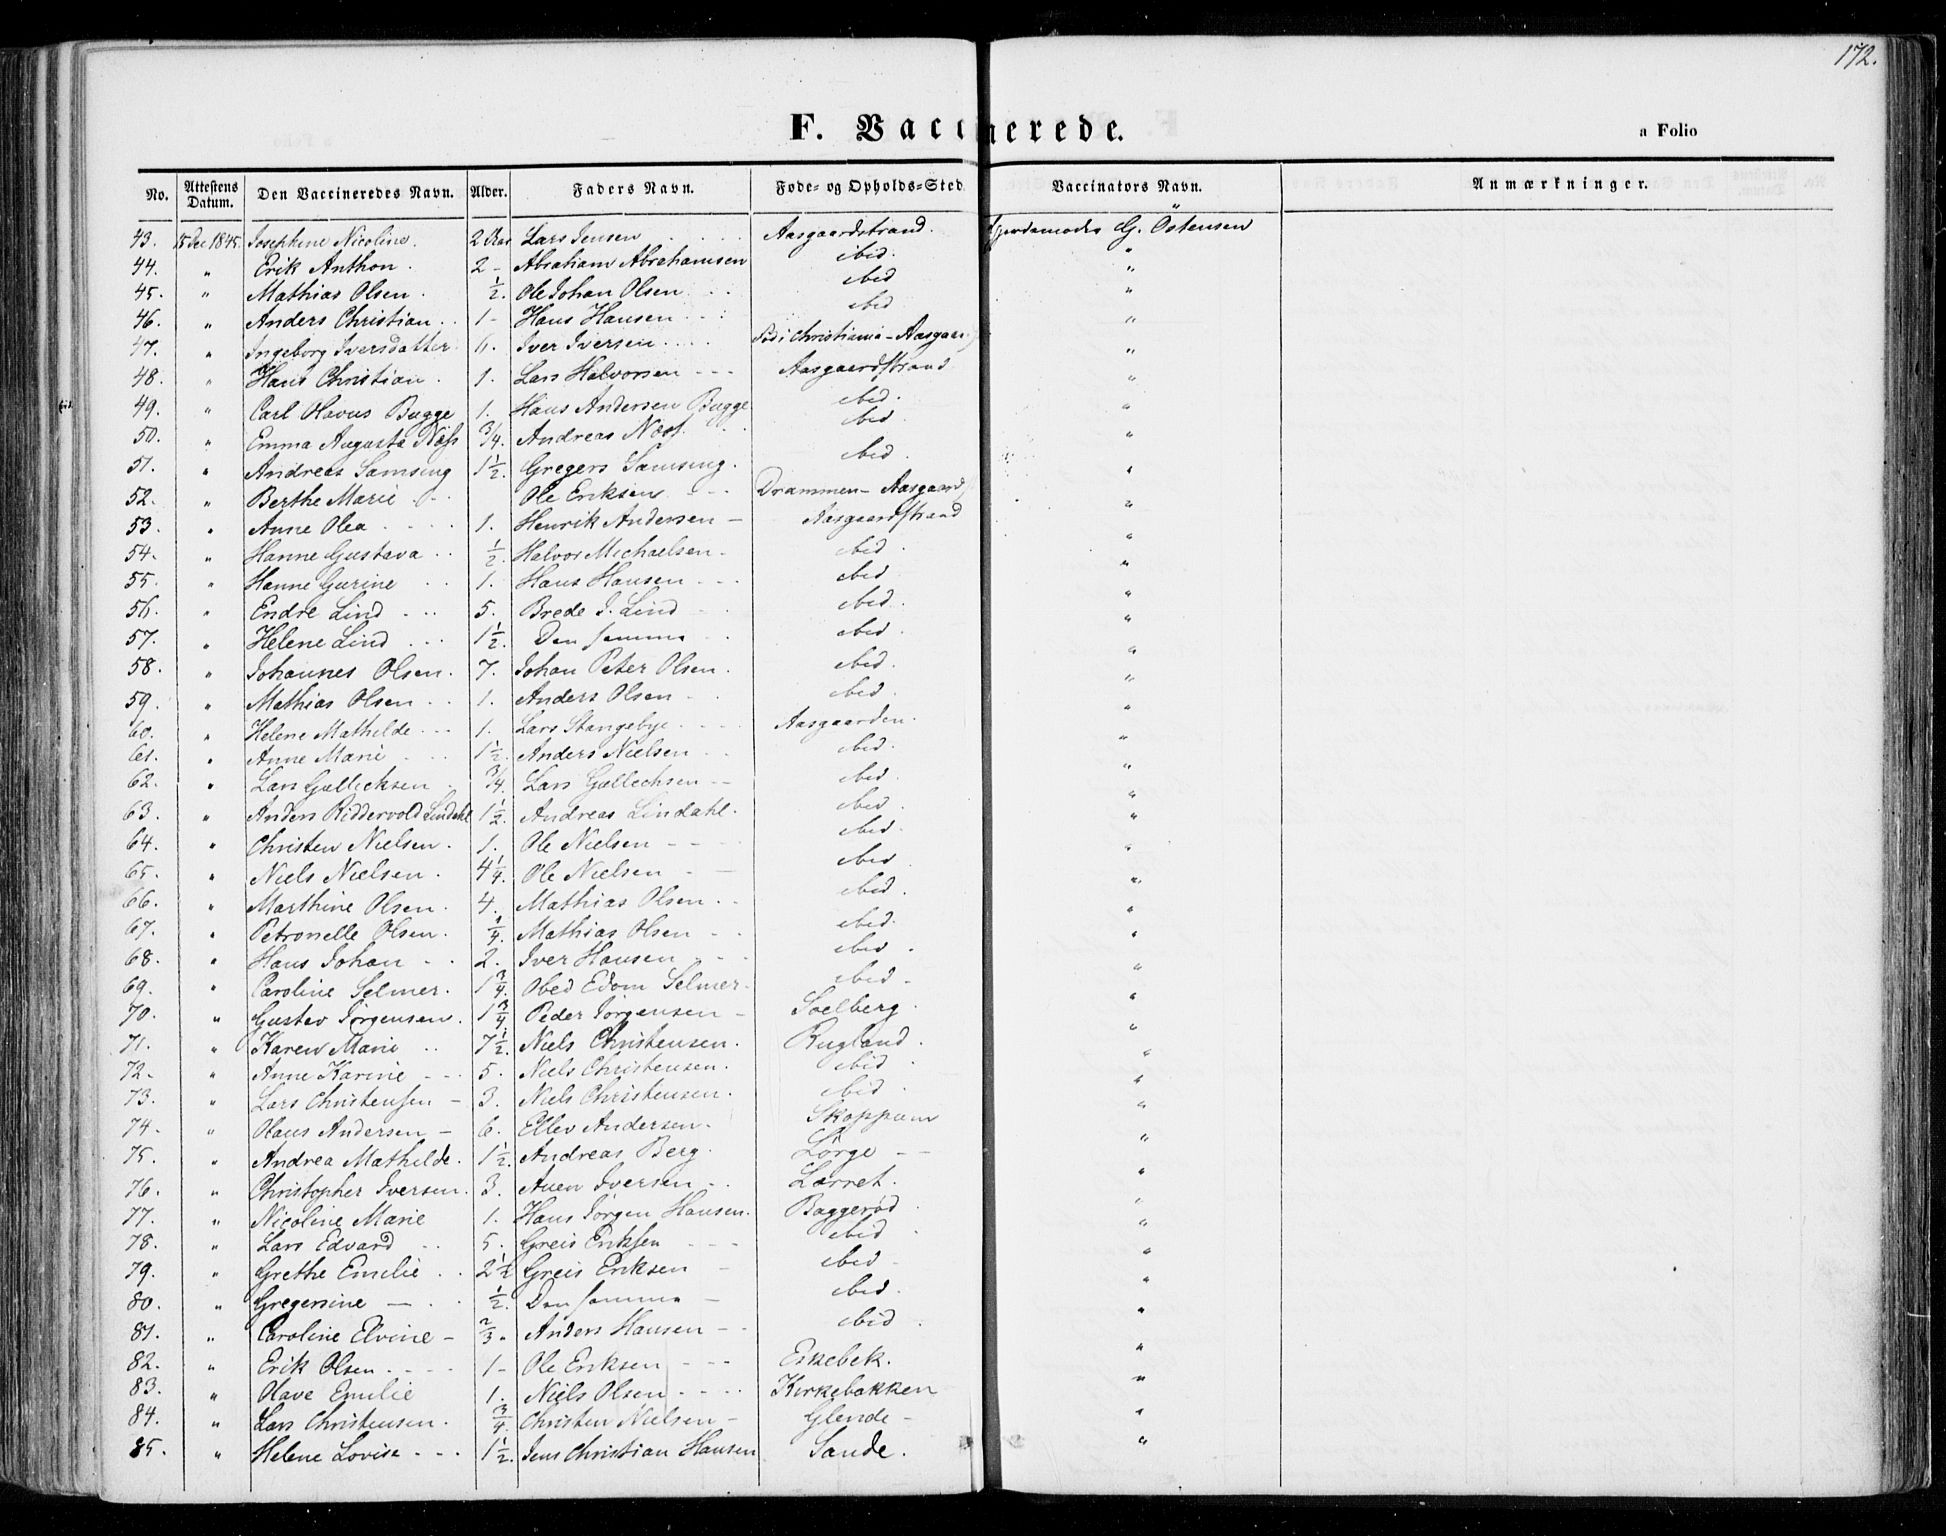 172.
F. Vaccinerede.
a Folio
No. Attestens Datum. Den Vaccineredes Navn. Alder. Faders Navn. Føde- og Opholds-Sted Vaccinators Navn. Anmærkninger.
43. 15 Dec 1845. Josephine Nicoline. 2 Aar Lars Jensen Aasgaardstrand. G. Östensen
44. " Erik Anthon. 2 - Abraham Abrahamsen ibid. "
45. " Mathias Olsen. 1/2. Ole Johan Olsen ibid "
46. " Anders Christian. 1 - Hans Hansen ibid "
47. " Ingeborg Iversdatter 6. Iver Iversen Fød i Christiania - Aasgaar "
48. " Hans Christian. 1. Lars Halvorsen Aasgaardstrand "
49. " Carl Olavus Bugge 1. Hans Andersen Bugge ibid. "
50. " Emma Augusta Næss 3/4. Andreas Næss ibid. "
51. " Andreas Samsing 1 1/2. Gregers Samsing. ibid. "
52. " Berthe Marie Ole Eriksen Drammen - Aasgaard "
53. " Anne Olea 1. Henrik Andersen - Aasgaardstrand "
54. " Hanne Gustava 1/2. Halvor Michaelsen. ibid. "
55. " Hanne Gurine 1. Hans Hansen ibid "
56. " Endre Lind 5. Brede I. Lind ibid. "
57. " Helene Lind 1 1/2. Den samme ibid. "
58. " Johannes Olsen. 7. Johan Peter Olsen. ibid. "
59. " Mathias Olsen 1. Anders Olsen ibid. "
60. " Helene Mathilde 1. Lars Stangebye Aasgaarden. "
61. " Anne Marie 1 1/2. Anders Nielsen ibid. "
62. " Lars Gullicksen 3/4. Lars Gullichsen ibid. "
63. " Anders Riddervold Lindahl 1 1/2. Andreas Lindahl. ibid. "
64. " Christen Nielsen. 1. Ole Nielsen ibid. "
65. " Niels Nielsen. 4 1/4. Ole Nielsen ibid. "
66. " Marthine Olsen. 4. Mathias Olsen ibid. "
67. " Petronelle Olsen. 1/4. Mathias Olsen ibid. "
68. " Hans Johan 2. Iver Hansen ibid. "
69. " Caroline Selmer. 1 3/4. Obed Edom Selmer. ibid. "
70. " Gustav Jörgensen. 1 3/4. Peder Jörgensen Soelberg. "
71. " Karen Marie 7 1/2. Niels Christensen. Rugland. "
72. " Anne Karine 5. Niels Christensen. ibid. "
73. " Lars Christensen - 3. Niels Christensen. ibid. "
74. " Hans Andersen - 6. Ellev Andersen. Skoppum "
75. " Andrea Mathilde. 1 1/2. Andreas Berg. Lörge "
76. " Christopher Iversen. 3. Auen Iversen Lørret. "
77. " Nicoline Marie 1. Hans Jörgen Hansen. Baggerød. "
78. " Lars Edvard 5. Greis Eriksen ibid. "
79. " Grethe Emilie 2 1/2 Greis Eriksen ibid "
80. " Gregersine 1/2. Den samme ibid. "
81. " Caroline Elvine - 2/3. Anders Hansen ibid. "
82. " Erik Olsen 1 - Ole Eriksen Eskebek. "
83. " Olave Emilie 1. Niels Olsen Kirkebakken "
84. " Lars Christensen. 3/4. Christen Nielsen - Glende - "
85. " Helene Lovise 1 1/2. Jens Christian Hansen Sande. "